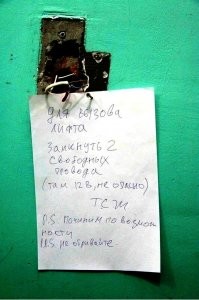 Для вызова
лифта
замкнуть 2
свободных
провода
(там 12 в, не опасно)
ТСЖ
P.S. Починим по возмож
ности
P.S. не обрывайте